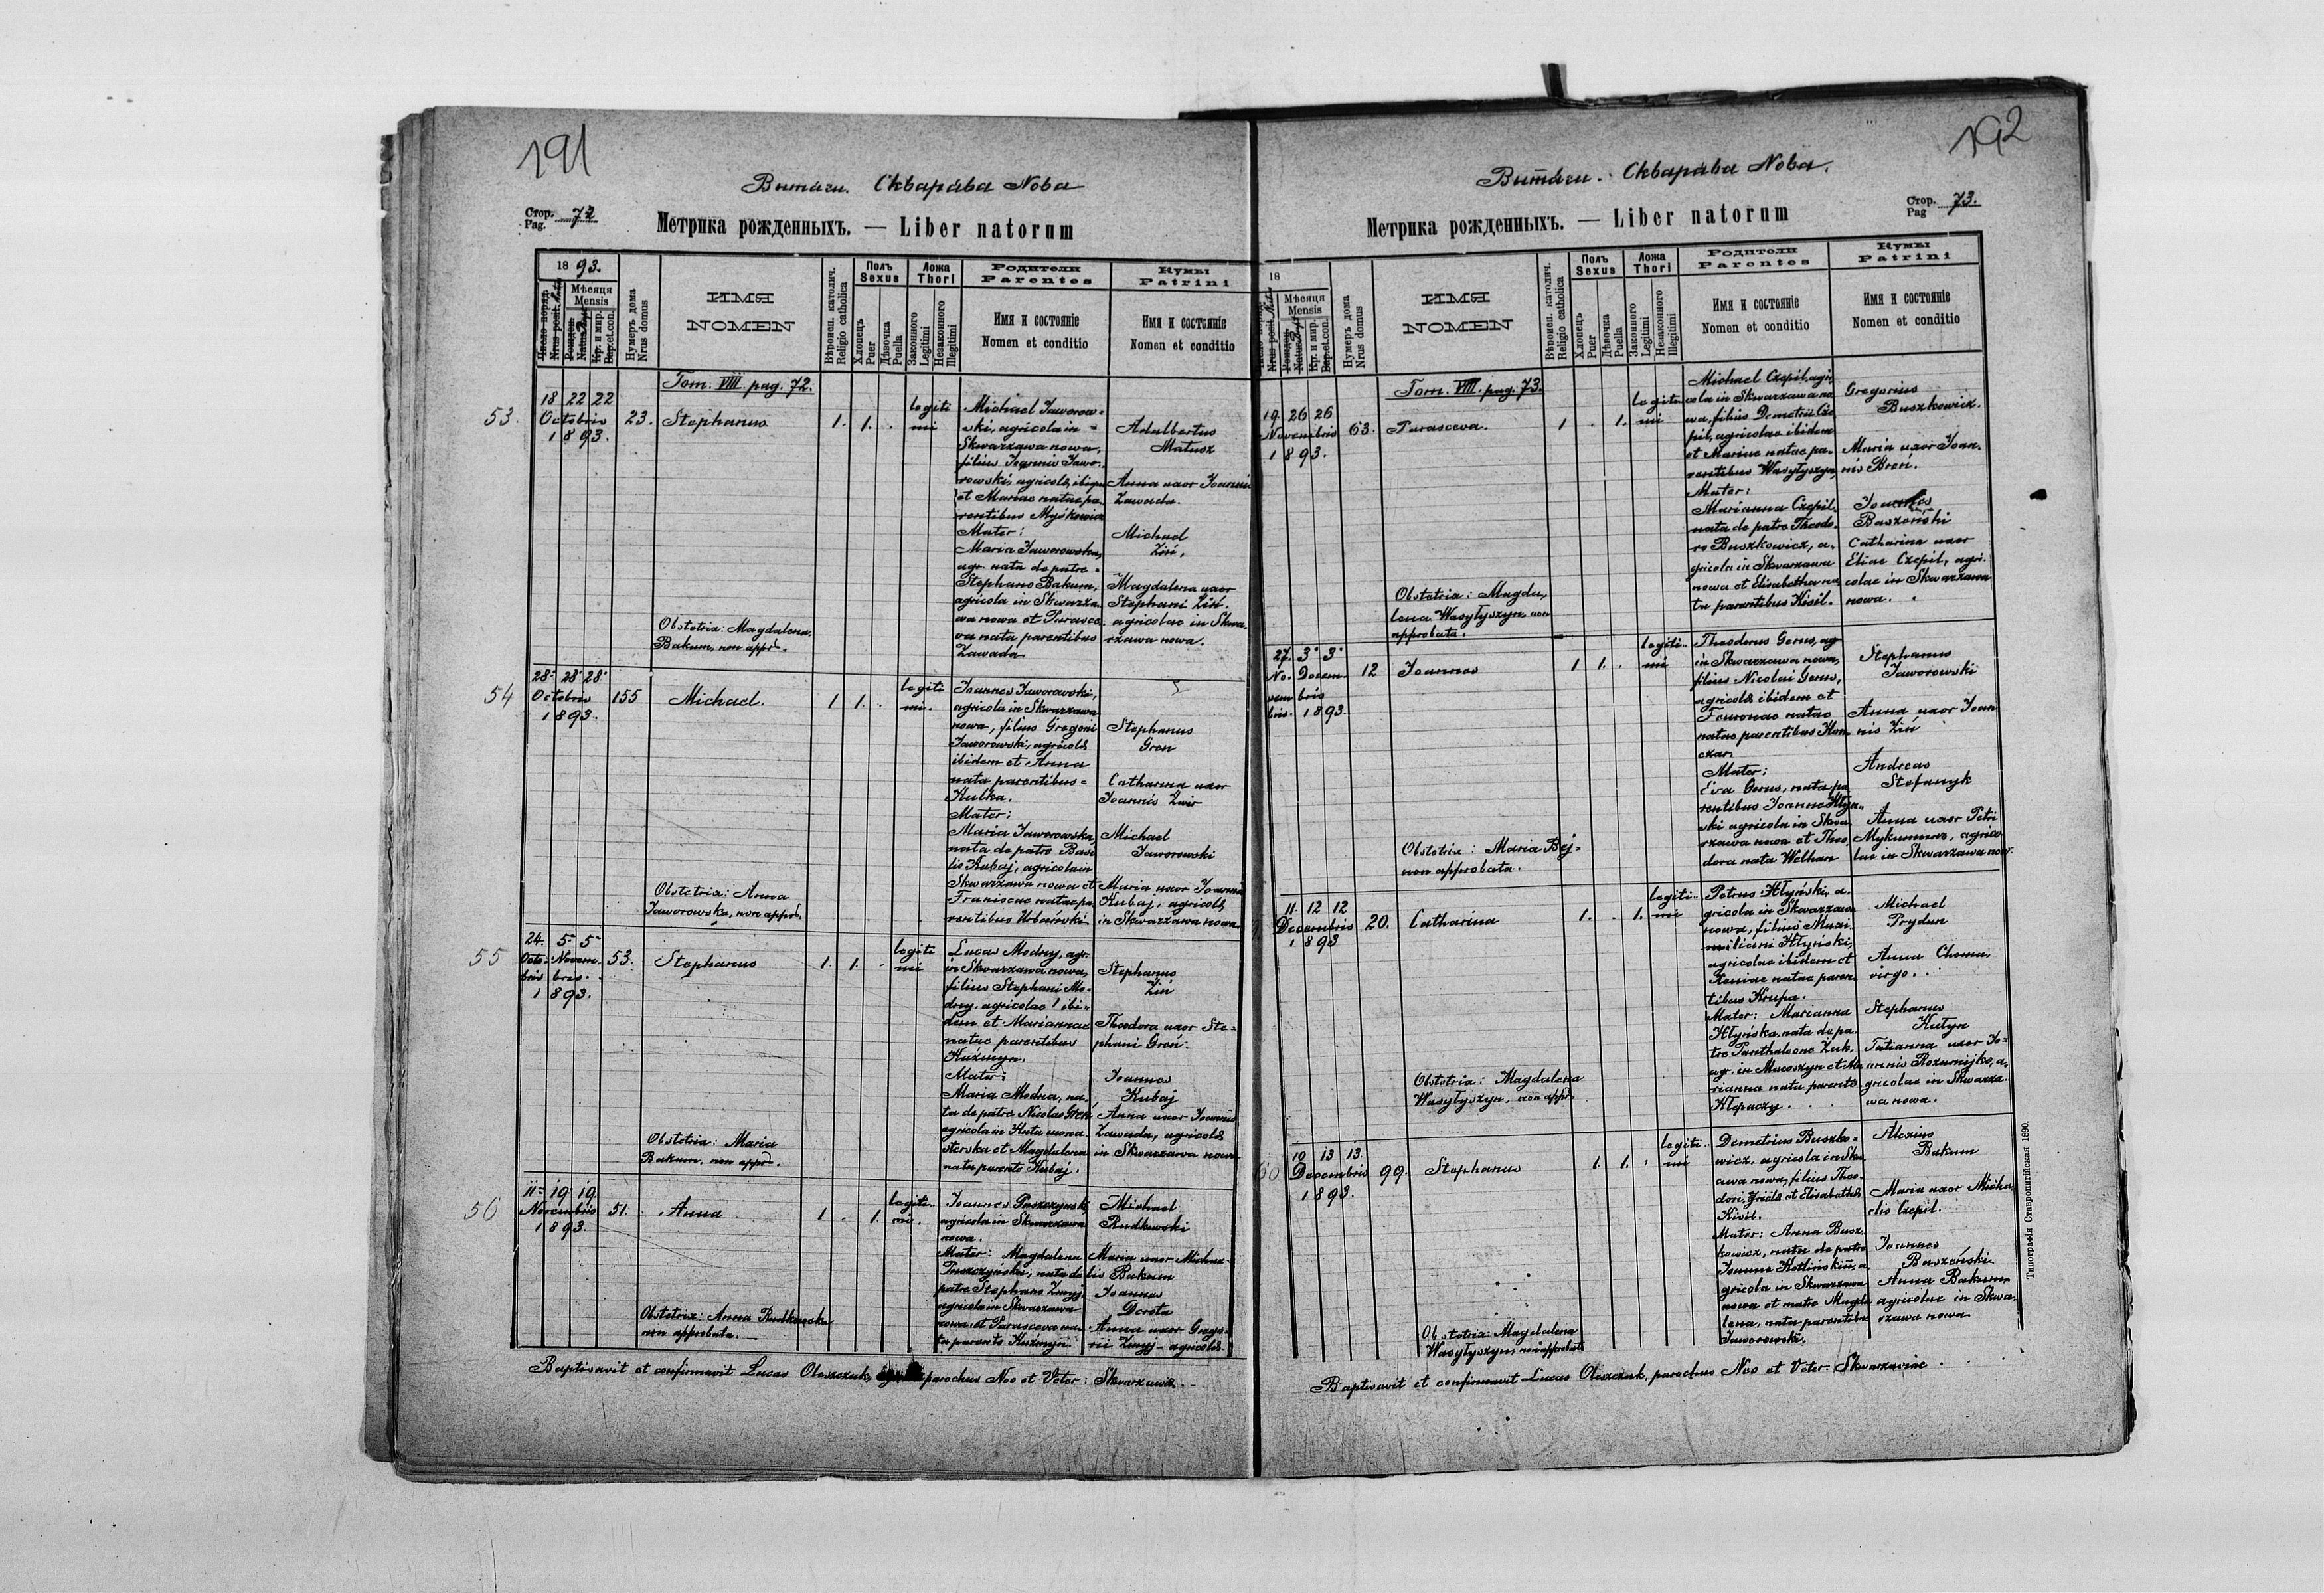 191
Витяги. Скварѣва Nова
Стор. Pag. 72
Метрика рожденныхъ. — Liber natorum
1893.
Число поряд. Nrus posit.
Мѣсяця Mensis
Рожден. Natus
Кр. и мир. Bap. et con.
Нумеръ дома Nrus domus
ИМЯ NOMEN
Вѣроиспов. католич. Religio catholica
Полъ Sexus
Хлопецъ Puer
Дѣвочка Puella
Ложа Thori
Законного Legitimi
Незаконного Illegitimi
Родители Parentes
Имя и состоянiе Nomen et conditio
Кумы Patrini
Имя и состоянiе Nomen et conditio
Tom. VIII. pag. 72.
53. 18 22 22
Octobris
1893.
23. Stephanus 1. 1. legiti
mi
Michael Jaworow-
ski, agricola in
Skwarzawa nowa,
filius Joannis Jawo-
rowski, agricola, ibique
et Mariae natae pa-
rentibus Myśkowicz
Mater:
Maria Jaworowska,
agr. nata de patre
Stephano Bakum,
agricola in Skwarza-
wa nowa et Parasce-
va nata parentibus
Zawada
Adalbertus
Matusz
Anna uxor Joannis
Zawada.
Michael
Ziń,
Magdalena uxor
Stephani Ziń.
agricolae in Skwa-
rzawa nowa.
Obstetrix: Magdalena
Bakum, non appr.
54 28. 28 28
Octobris
1893.
155 Michael. 1 1. legiti
mi.
Joannes Jaworowski,
agricola in Skwarzawa
nowa, filius Gregorii
Jaworowski, agricola
ibidem et Anna
nata parentibus
Kulka.
Mater:
Maria Jaworowska,
nata de patre Basi
lio Kubaj, agricola in
Skwarzawa nowa et
Franiscae natae pa
rentibus Urbański.
Stephanus
Gren
Catharina uxor
Joannis Zwir
Michael
Jaworowski
Maria uxor Joannis
Kubaj, agricola
in Skwarzawa nowa.
Obstetrix: Anna
Jaworowska, non appr.
55 24. 5 5
Octo- Novem-
bris bris.
1893.
53. Stephanus 1. 1. legiti
mi
Lucas Modny, agr.
in Skwarzawa nowa,
filius Stephani Mo-
dny, agricolae ibi-
dem et Mariannae
natae parentibus
Kuźmyn.
Mater:
Maria Modna, na-
ta de patre Nicolao Greń
agricola in Huta mona-
sterska et Magdalena
nata parents Kubaj.
Stephanus
Ziń
Theodora uxor Ste-
phani Greń.
Joannes
Kubaj
Anna uxor Joannis
Zawada, agricola
in Skwarzawa nowa
Obstetrix: Maria
Bakum, non appr.
56 11. 19. 19.
Novembris
1893.
51. Anna 1 1. legiti-
mi.
Joannes Puszczyński,
agricola in Skwarzawa
nowa.
Mater: Magdalena
Puszczyńska, nata de
patre Stephano Zmyj,
agricola in Skwarzawa
nowa et Parasceva na-
ta parents Kuźmyn.
Michael
Rudkowski
Maria uxor Michae-
lis Bakum
Joannes
Derota
Anna uxor Grego-
rii Zmyj - agricola.
Obstetrix: Anna Rudkowska
non approbata.
Baptisavit et confirmavit Lucas Oleszczuk, parochus Neo et Veter: Skwarzawa.
192
Витяги. Скварѣва Nова.
Стор. Pag 73.
Метрика рожденныхъ. — Liber natorum
18
Nrus posit.
Мѣсяця Mensis
Рожден. Natus
Кр. и мир. Bap. et con.
Нумеръ дома Nrus domus
ИМЯ NOMEN
Вѣроиспов. католич. Religio catholica
Полъ Sexus
Хлопецъ Puer
Дѣвочка Puella
Ложа Thori
Законного Legitimi
Незаконного Illegitimi
Родители Parentes
Имя и состоянiе Nomen et conditio
Кумы Patrini
Имя и состоянiе Nomen et conditio
Tom. VIII. pag. 73.
19. 26 26
Novembris
1893.
63. Parasceva. 1 1. legiti
mi
Michael Czepil, agri
cola in Skwarzawa no
wa, filius Demetrii Cze
pil, agricolae ibidem
et Mariae natae pa-
rentibus Wasyłyszyn,
Mater:
Marianna Czepil,
nata de patre Theodo-
ro Buszkowicz, a-
gricola in Skwarzawa
nowa et Elisabetha na
ta parentibus Kisil.
Gregorius
Buszkowicz.
Maria uxor Joan-
nis Breń.
Joannes
Baszoński
Catharina uxor
Eliae Czepil, agri-
colae in Skwarzawa
nowa.
Obstetrix: Magda-
lena Wasyłyszyn non
approbata.
27. 3 3
No- Decem-
vem bris
bris. 1893.
12 Joannes 1 1. legiti-
mi
Theodorus Gerus, agr
in Skwarzawa nowa,
filius Nicolai Gerus,
agricola ibidem et
natae
natae parentibus Kon-
czar.
Mater:
Eva Gerus, nata pa
rentibus Joanne Hłyń-
ski agricola in Skwa-
rzawa nowa et Theo
dora nata Welhan
Stephanus
Jaworowski
Anna uxor Joan
nis Ziń
Andreas
Stefanyk
Anna uxor Petri
agrico
lae in Skwarzawa now.
Obstetrix: Maria Bej-
non approbata.
11. 12 12
Decembris
1893
20. Catharina 1. 1. legiti-
mi
Petrus Hłyński, a-
gricola in Skwarzawa
nowa, filius Maxi
miliani Hłyński,
agricolae ibidem et
Xeniae natae paren
tibus Krupa.
Mater: Marianna
Hłyńska, nata de pa-
tre Panthaleone Żuk,
agr. in Macoszyn et Ma
rianna nata parents
Kłepaczy.
Michael
Prydun
Anna Choma,
virgo.
Stephanus
Kutyn
Tatianna uxor Jo-
annis Rozumijko, a-
gricolae in Skwarza-
wa nowa.
Obstetrix: Magdalena
Wasyłyszyn, non appr.
60 10 13 13.
Decembris
1893.
99. Stephanus 1. 1. legiti-
mi
Demetrius Buszko-
wicz, agricola in Skw
awa nowa, filius Theo-
dori, agricola et Elisabetha
Kisil.
Mater: Anna Busz-
kowicz, nata de patre
Joanne Kotliński, a
gricola in Skwarzawa
nowa et matre Magda
lena, nata parentibus
Jaworowski.
Alexius
Bakum
Maria uxor Micha-
elis Czepil.
Joannes
Baszoński
Anna Bakum
agricolae in Skwa-
rzawa nowa
Obstetrix: Magdalena
Wasyłyszyn, non approbata
Baptisavit et confirmavit Lucas Oleszczuk, parochus Neo et Veter Skwarzaviae.
Типографія Ставропигійская 1890.